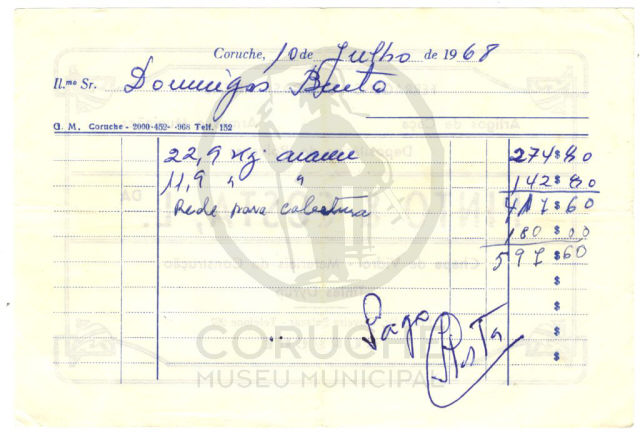 Coruche, 10 de Julho de 1968
Il.mo Sr. Domingos Bento
G. M. Coruche - 2000-452- -968 Telf. 152
22,9 Kg. arame 274$80
11,9 " " 142$80
417$60
Rede para cobertura 180$00
597$60
$
$
$
$
Pago
CORUCHE
MUSEU MUNICIPAL